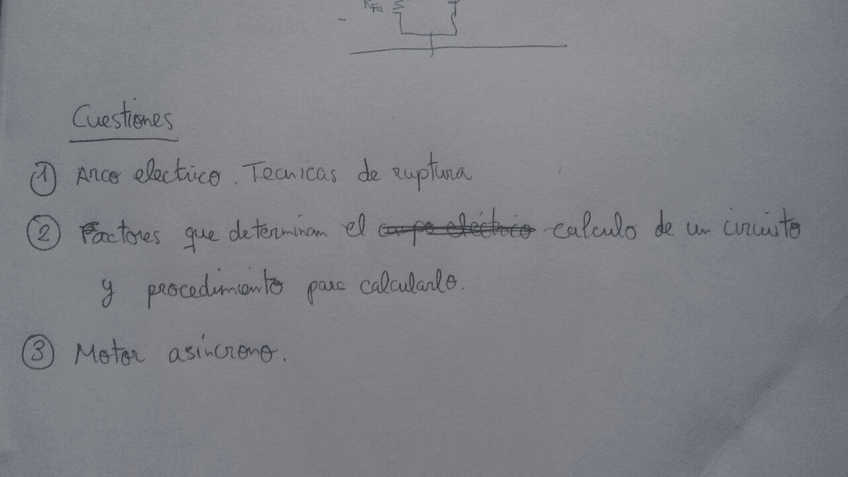 RFe
Cuestiones
① Arco electrico. Tecnicas de ruptura
② Factores que determinan el campo eléctrico calculo de un circuito
y procedimiento para calcularlo.
③ Motor asíncrono.